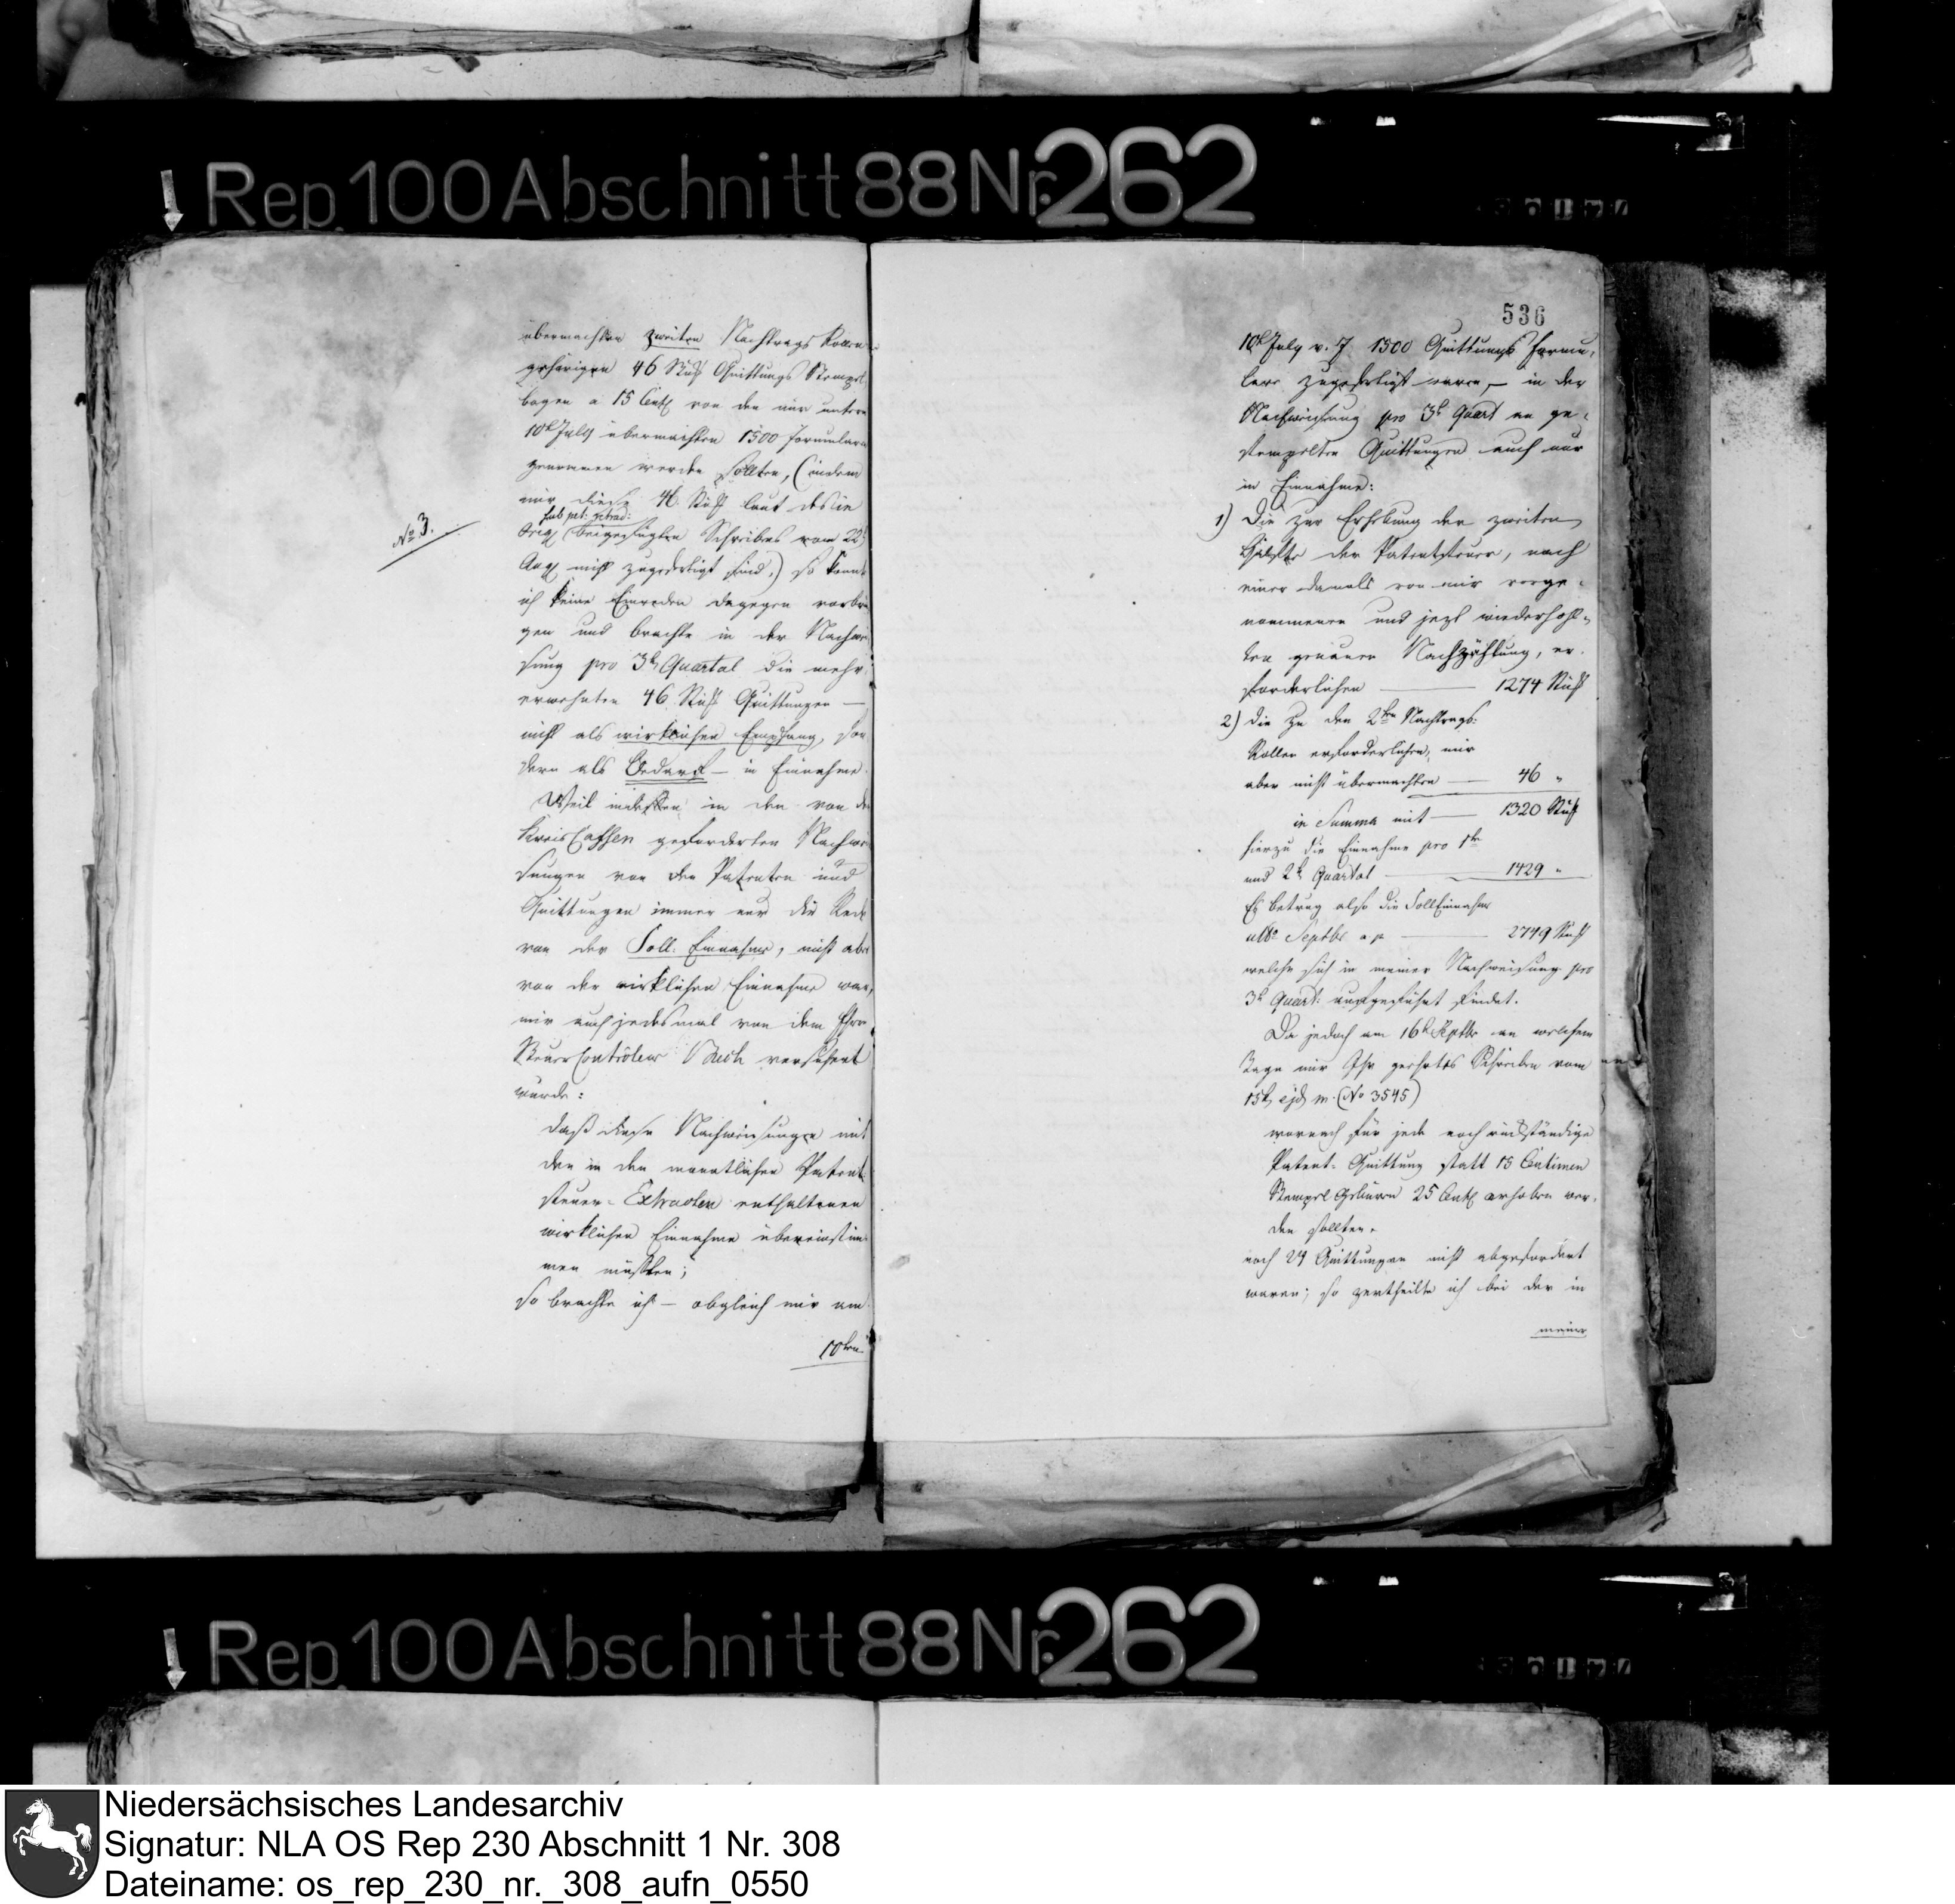 Rep. 100 Abschnitt 88 Nr. 262
übermachten zweiten Nachtrags Rollen
gehörigen 46 Stück Quittungs Stempel
bogen a 15 Cent von den mir unterm
10t July übermachten 1500 Formulare
genommen werden sollten, (indem
mir diese 46. Stück laut des in
sub pet: petrad:
Orig beigefügten Schreibens vom 22t
No 3.
Aug nicht zugefertigt sind,) so konnte
ich keine Einreden dagegen vorbrin
gen und brachte in der Nachwei
sung pro 3t Quartal die mehr
erwehnten 46 Stück Quittungen —
nicht als wirklichen Empfang, son
dern als Bedarf — in Einnahme.
Weil indessen in den von den
Kreis Cassen geforderten Nachwei
sungen von den Patenten und
Quittungen immer nur die Rede
von der Soll-Einnahme, nicht aber
von der wirklichen Einnahme war,
mir auch jedesmal von dem Herrn
Steuer Contrôleur versichert
wurde:
daß diese Nachweisungen mit
den in den monatlichen Patent
steuer-Extracten enthaltenen
wirklichen Einnahme übereinstim
men müßten;
so brachte ich — obgleich mir am
10ten
536
10t July v. J. 1500 Quittungs Formu-
lare zugefertigt waren, — in der
Nachweisung pro 3t Quart an ge-
stempelten Quittungen auch nur
in Einnahme:
1) Die zur Erhebung der zweiten
Hälfte der Patentsteuer, nach
einer damals von mir vorge-
nommenen und jezt wiederhohl-
ten genauen Nachzählung, er-
forderlichen — 1274 Stück
2) die zu den 2ten Nachtrags-
Rollen erforderlichen, mir
aber nicht übermachten — 46 "
in Summa mit — 1320 Stück
hierzu die Einnahme pro 1ten
und 2t Quartal — 1429 "
Es betrug also die Soll Einnahme
ulto Septbr a. p. — 2749 Stück
welche sich in meiner Nachweisung pro
3t Quart: aufgeführt findet.
Da jedoch am 16t Septbr an welchem
Tage mir Ihr geehrtes Schreiben vom
15t ejd m. (No 3545)
wornach für jede noch rückständige
Patent-Quittung statt 15 Centimen
Stempel Gebüren 25 Cent erhoben wer-
den sollten,
noch 24 Quittungen nicht abgefordert
waren; so zertheilte ich bei der in
meiner
Rep. 100 Abschnitt 88 Nr. 262
Niedersächsisches Landesarchiv
Signatur: NLA OS Rep 230 Abschnitt 1 Nr. 308
Dateiname: os_rep_230_nr._308_aufn_0550